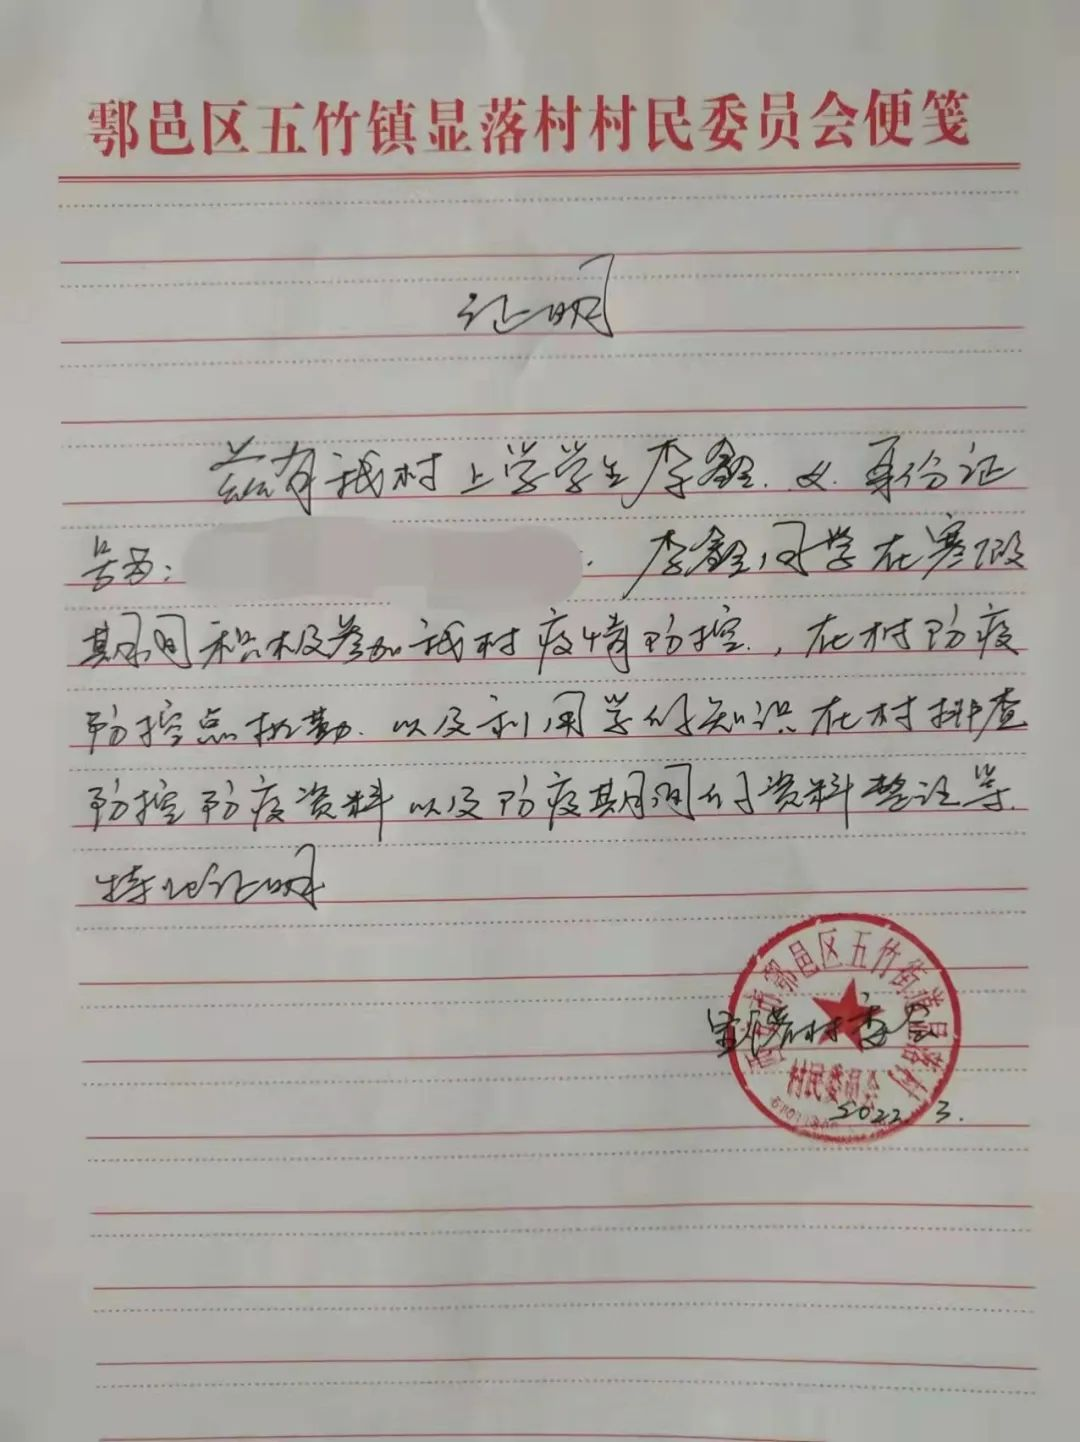 鄠邑区五竹镇显落村村民委员会便笺
证明
兹有我村上学学生李鑫.女.身份证
号为: . 李鑫同学在寒假
期间积极参加我村疫情防控.,在村防疫
防控点执勤.以及利用学的知识在村排查
防控防疫资料以及防疫期间的资料整理等.
特此证明
显落村委会
2022.3.
鄠邑区五竹街道显落村
村民委员会